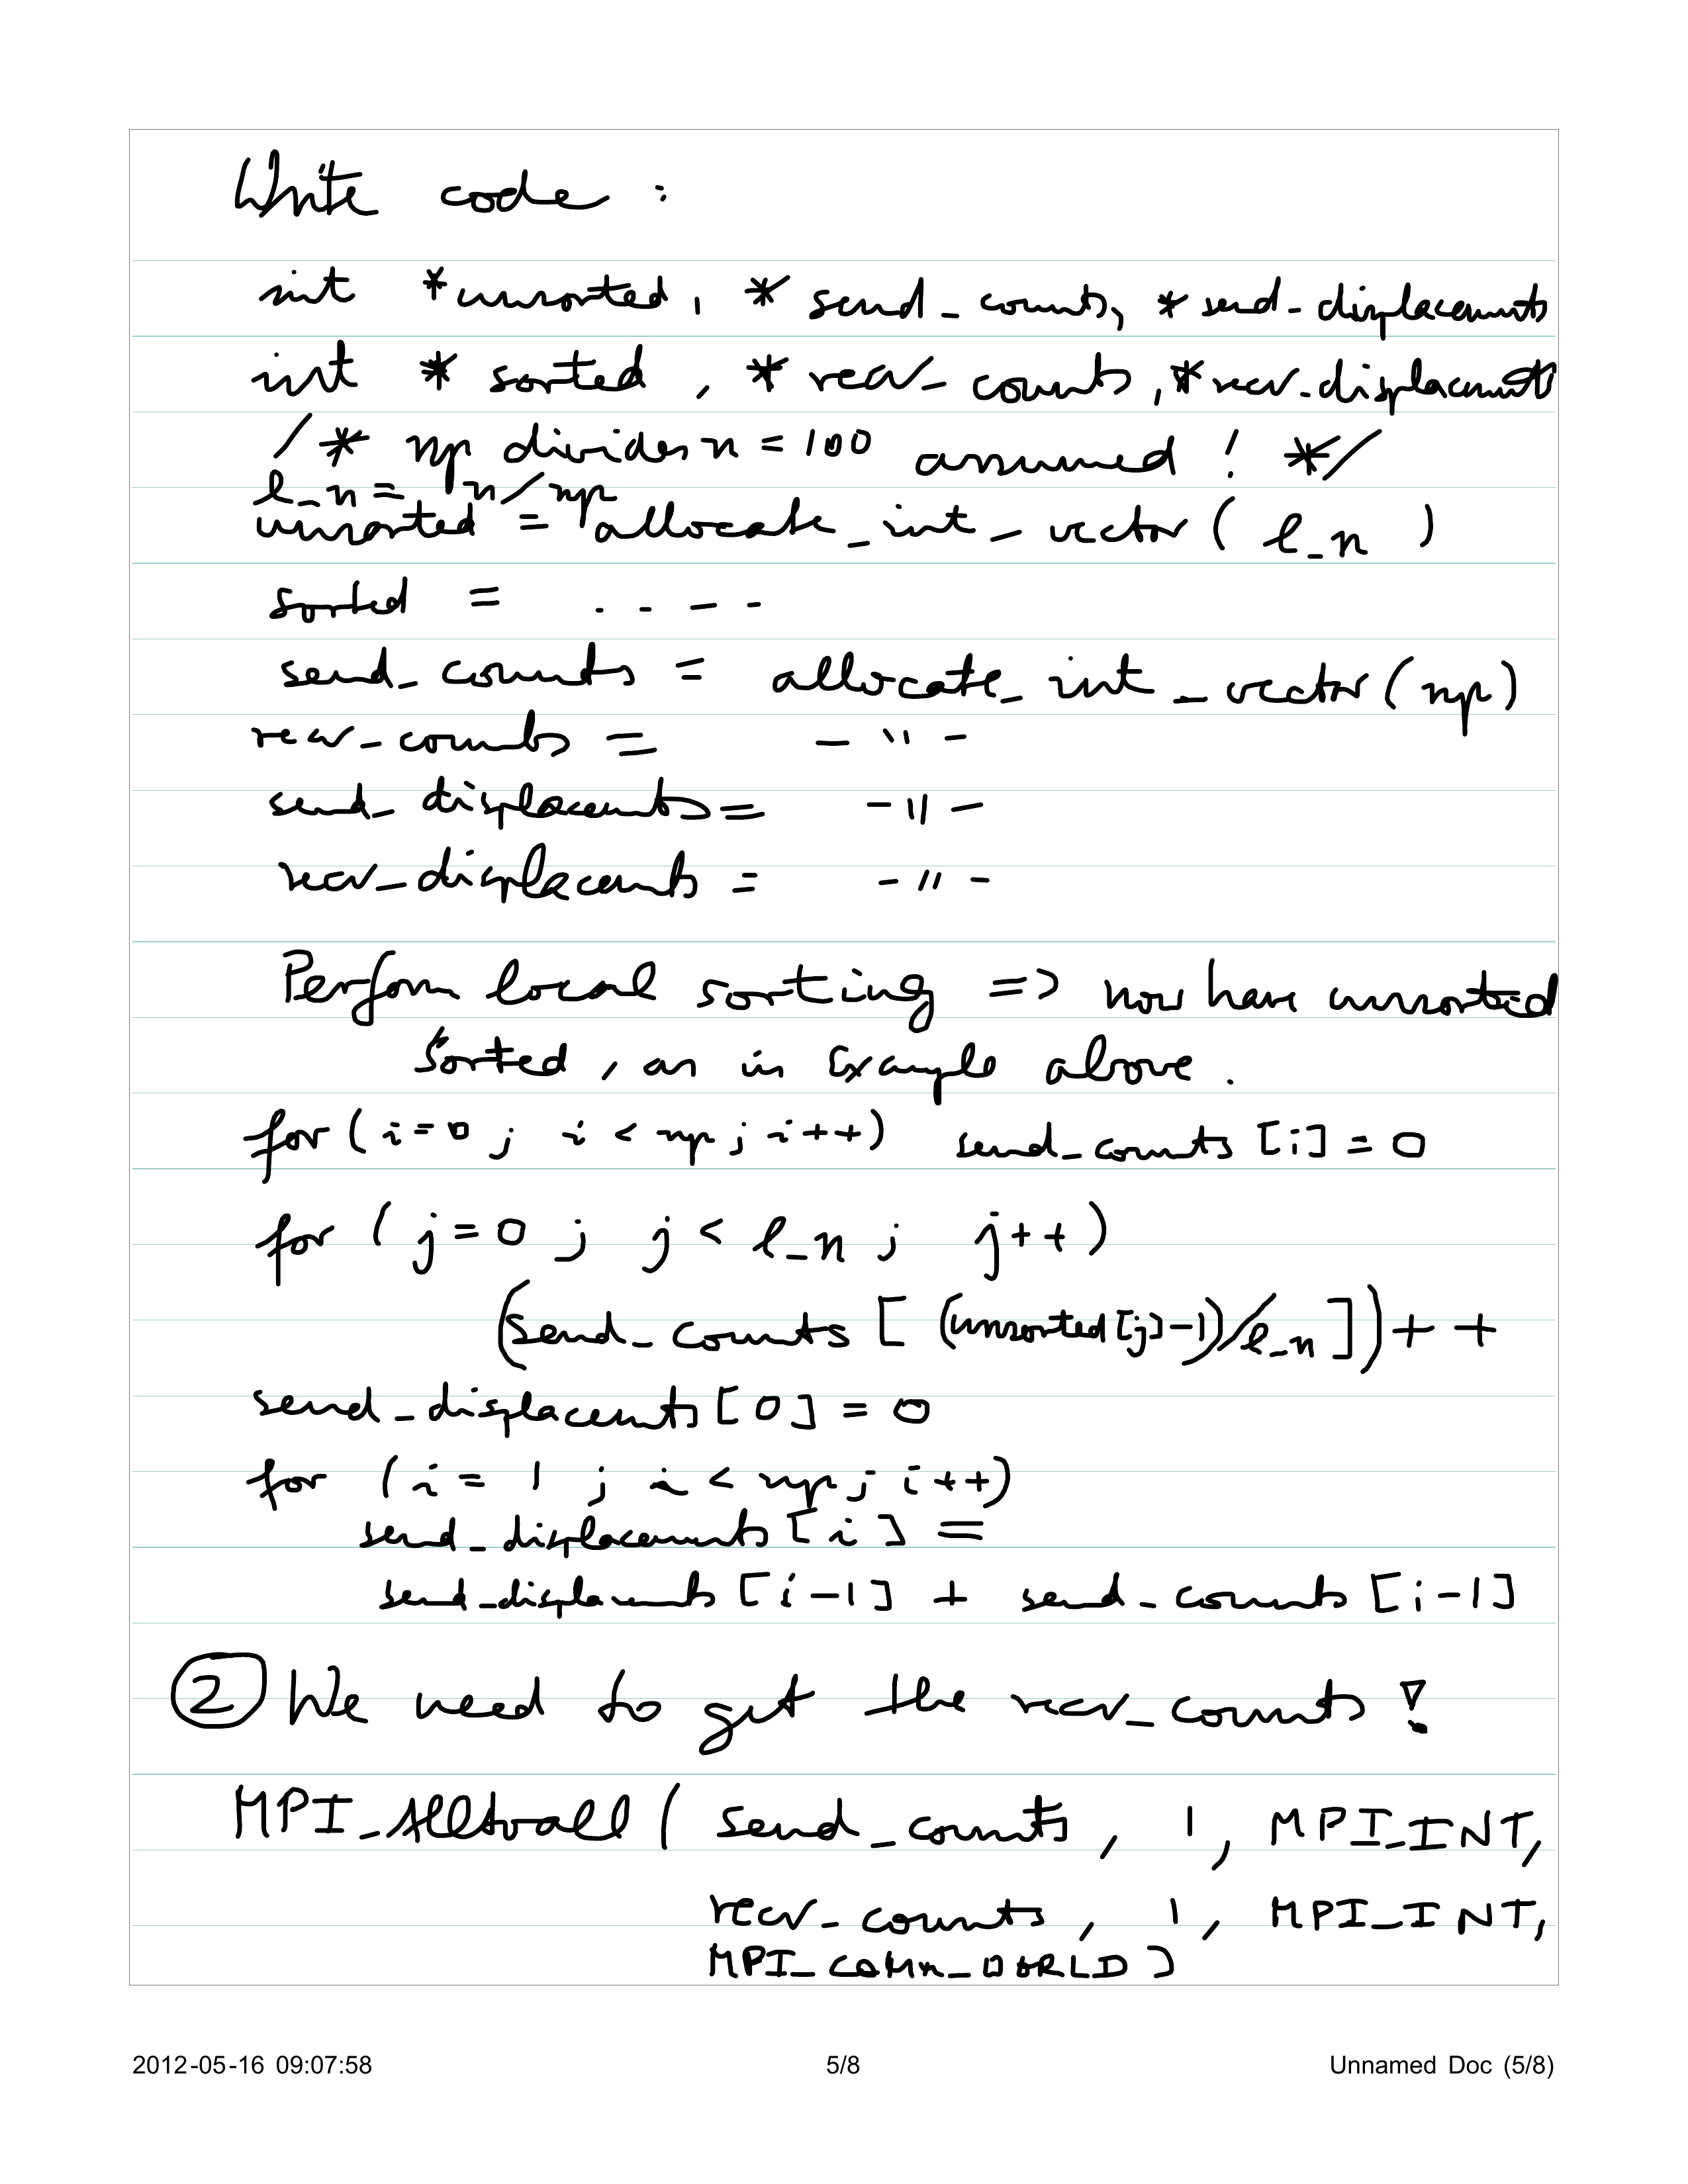 Write code :
int *unsorted, * send_counts, * send_displacements
int * sorted , * recv_counts, * recv_displacements
/* np divides n = 100 assumed ! */
l_n = n/np
unsorted = allocate_int_vector ( l_n )
sorted = . . - -
send_counts = allocate_int_vector (np)
recv_counts = - " -
send_displacents = - " -
recv_displacents = - " -
Perform local sorting => now have unsorted
sorted , as in Example above .
for ( i=0 ; i < np ; i++) send_counts [i] = 0
for ( j=0 ; j < l_n ; j++ )
(send_counts [ (unsorted[j]-1)/l_n ])++
send_displacents [0] = 0
for ( i = 1 ; i < np ; i++)
send_displacements [i] =
send_displacements [i-1] + send_counts [i-1]
② We need to get the recv_counts !
MPI_Alltoall ( send_counts , 1, MPI_INT,
recv_counts , 1, MPI_INT,
MPI_COMM_WORLD )
2012-05-16 09:07:58 5/8 Unnamed Doc (5/8)